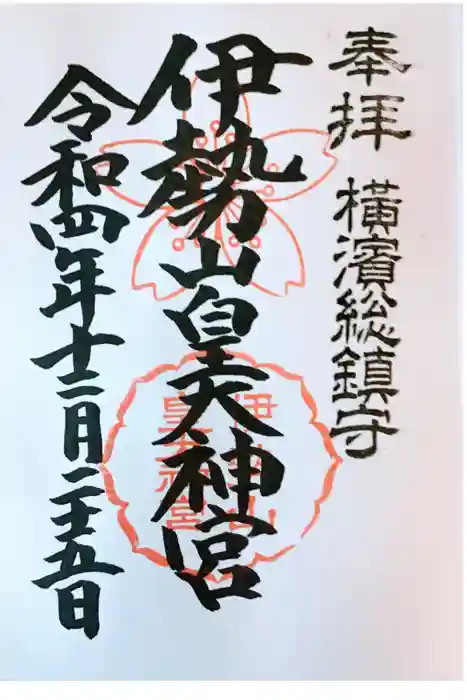 奉拝 横濱総鎮守
伊勢山皇大神宮
令和四年十二月二十五日
伊勢山
皇大神宮